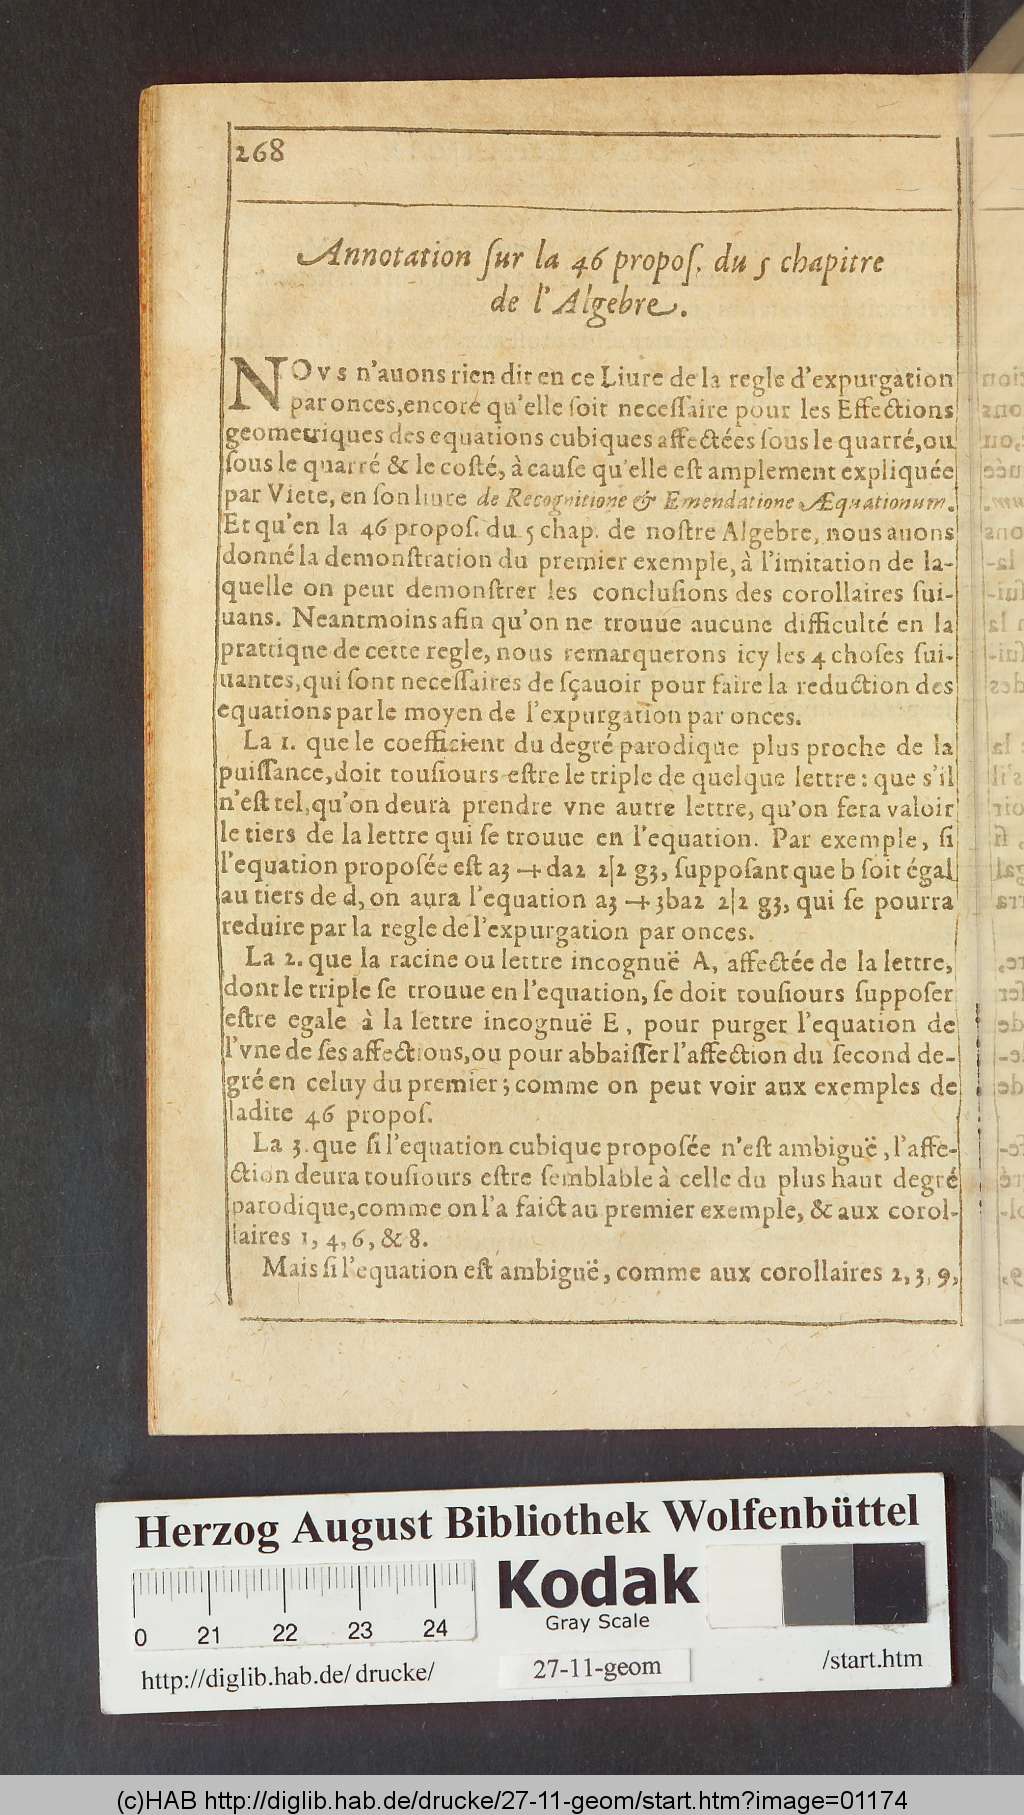 268
Annotation ſur la 46 propoſ. du 5 chapitre
de l'Algebre.
NOvs n'auons rien dit en ce Liure de la regle d'expurgation
par onces, encore qu'elle ſoit neceſſaire pour les Effections
geometriques des equations cubiques affectées ſous le quarré, ou
ſous le quarré & le coſté, à cauſe qu'elle eſt amplement expliquée
par Viete, en ſon liure de Recognitione & Emendatione Æquationum.
Et qu'en la 46 propoſ. du 5 chap. de noſtre Algebre, nous auons
donné la demonſtration du premier exemple, à l'imitation de la-
quelle on peut demonſtrer les concluſions des corollaires ſui-
uans. Neantmoins afin qu'on ne trouue aucune difficulté en la
prattique de cette regle, nous remarquerons icy les 4 choſes ſui-
uantes, qui ſont neceſſaires de ſçauoir pour faire la reduction des
equations par le moyen de l'expurgation par onces.
La 1. que le coefficient du degré parodique plus proche de la
puiſſance, doit touſiours eſtre le triple de quelque lettre: que s'il
n'eſt tel, qu'on deura prendre vne autre lettre, qu'on fera valoir
le tiers de la lettre qui ſe trouue en l'equation. Par exemple, ſi
l'equation proposée eſt a3 + da2 2|2 g3, ſuppoſant que b ſoit égal
au tiers de d, on aura l'equation a3 + 3ba2 2|2 g3, qui ſe pourra
reduire par la regle de l'expurgation par onces.
La 2. que la racine ou lettre incognuë A, affectée de la lettre,
dont le triple ſe trouue en l'equation, ſe doit touſiours ſuppoſer
eſtre egale à la lettre incognuë E, pour purger l'equation de
l'vne de ſes affections, ou pour abbaiſſer l'affection du ſecond de-
gré en celuy du premier; comme on peut voir aux exemples de
ladite 46 propoſ.
La 3. que ſi l'equation cubique propoſée n'eſt ambiguë, l'affe-
ction deura touſiours eſtre ſemblable à celle du plus haut degré
parodique, comme on l'a faict au premier exemple, & aux corol-
laires 1, 4, 6, & 8.
Mais ſi l'equation eſt ambiguë, comme aux corollaires 2, 3, 9,
Herzog August Bibliothek Wolfenbüttel
Kodak
Gray Scale
0 21 22 23 24
http://diglib.hab.de/ drucke/ 27-11-geom /start.htm
(c)HAB http://diglib.hab.de/drucke/27-11-geom/start.htm?image=01174